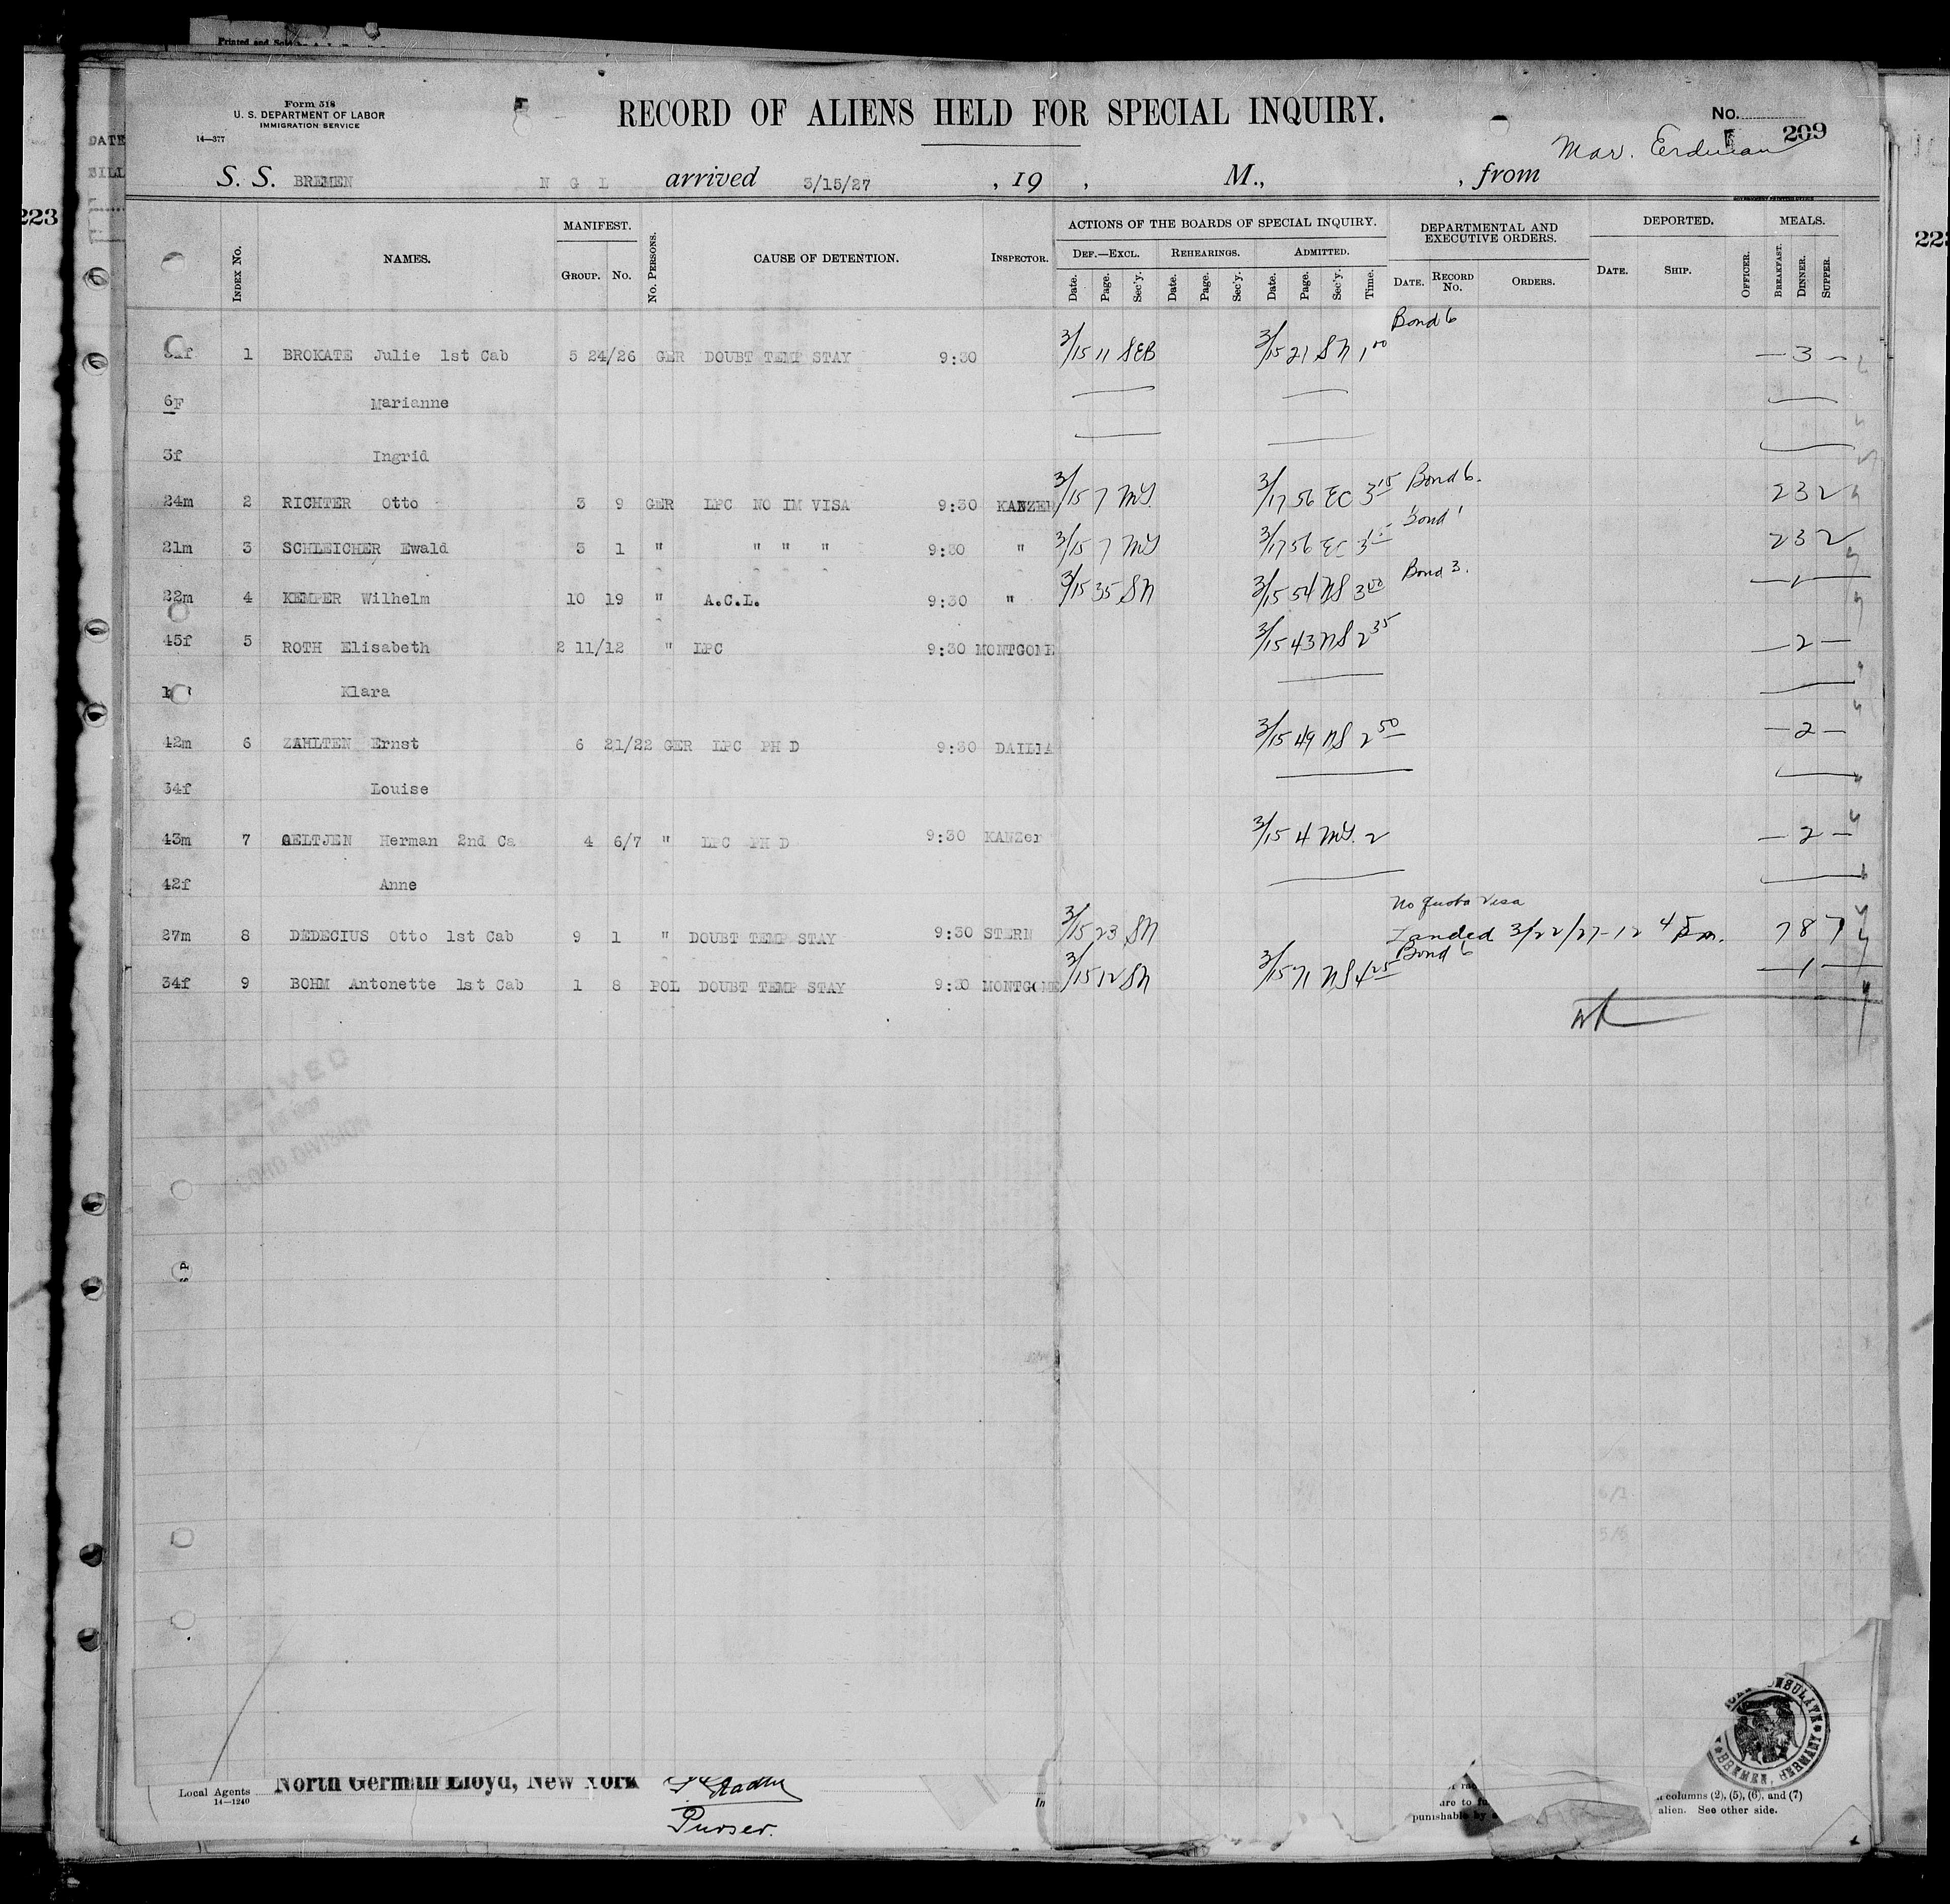 Printed and
Form 518
U. S. DEPARTMENT OF LABOR
IMMIGRATION SERVICE
14—377
RECORD OF ALIENS HELD FOR SPECIAL INQUIRY.
No.
209
Mar. Eerdman
S. S. BREMEN N G L arrived 3/15/27 , 19 , M., , from
DATE
223
INDEX No.
NAMES.
MANIFEST.
GROUP. No.
No. PERSONS.
CAUSE OF DETENTION.
INSPECTOR.
ACTIONS OF THE BOARDS OF SPECIAL INQUIRY.
DEF.—EXCL. REHEARINGS. ADMITTED.
Date. Page. Sec'y. Date. Page. Sec'y. Date. Page. Sec'y. Time.
DEPARTMENTAL AND
EXECUTIVE ORDERS.
DATE. RECORD No. ORDERS.
DEPORTED.
DATE. SHIP.
OFFICER.
MEALS.
BREAKFAST. DINNER. SUPPER.
Bond 6
1 BROKATE Julie 1st Cab 5 24/26 GER DOUBT TEMP STAY 9:30 3/15 11 SEB 3/15 21 SN 1 00 — 3 —
6F Marianne
3f Ingrid
24m 2 RICHTER Otto 3 9 GER LPC NO IM VISA 9:30 KANZER 3/15 7 MY 3/17 56 EC 3 15 Bond 6. 2 3 2
21m 3 SCHLEICHER Ewald 5 1 " " " " 9:30 " 3/15 7 MY 3/17 56 EC 3 Bond 2 3 2
22m 4 KEMPER Wilhelm 10 19 " A.C.L. 9:30 " 3/15 35 SN 3/15 54 NS 3 50 Bond 3. — 1 —
45f 5 ROTH Elisabeth 2 11/12 " LPC 9:30 MONTGOME 3/15 43 NS 2 35 — 2 —
Klara
42m 6 ZAHLTEN Ernst 6 21/22 GER LPC PH D 9:30 3/15 49 NS 2 50 — 2 —
34f Louise
43m 7 OELTJEN Herman 2nd Ca 4 6/7 " LPC PH D 9:30 KANZer 3/15 4 MY. 2 — 2 —
42f Anne
No quota visa
27m 8 DEDECIUS Otto 1st Cab 9 1 " DOUBT TEMP STAY 9:30 STERN 3/15 23 SN Landed 3/22/27-12 45 m. 7 8 7
Bond 6
34f 9 BOHM Antonette 1st Cab 1 8 POL DOUBT TEMP STAY 9:30 MONTGOME 3/15 12 SN 3/15 71 NS 4 25 — 1 —
Local Agents North German Lloyd, New York
14—1240
Purser.
In
punishable by
columns (2), (5), (6), and (7)
alien. See other side.
BREMEN, GERMANY